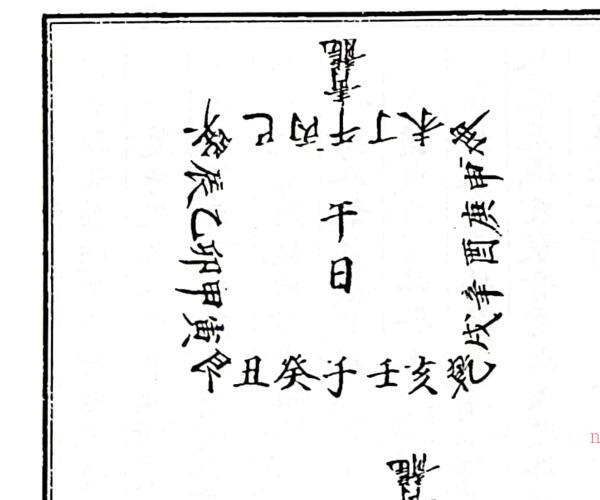 青龍
巽巳丙午丁未坤
辰乙卯甲寅
午日
申庚酉辛戌
艮丑癸子壬亥乾
龍